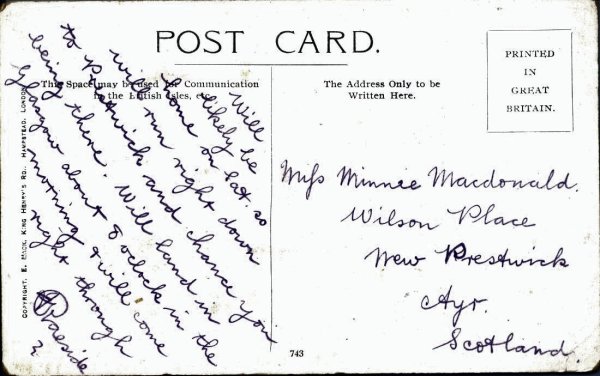 POST CARD.
This Space may be used for Communication
in the British Isles, etc.
The Address Only to be
Written Here.
PRINTED
IN
GREAT
BRITAIN.
COPYRIGHT. E. MACK, KING HENRY'S RD., HAMPSTEAD, LONDON
Will
likely be
home on Sat. so
will run right down
to Prestwick and chance you
being there. Will land in
Glasgow about 8 oclock in the
morning & will come
right through
Miss Minnie Macdonald.
Wilson Place
New Prestwick
Ayr.
Scotland.
743